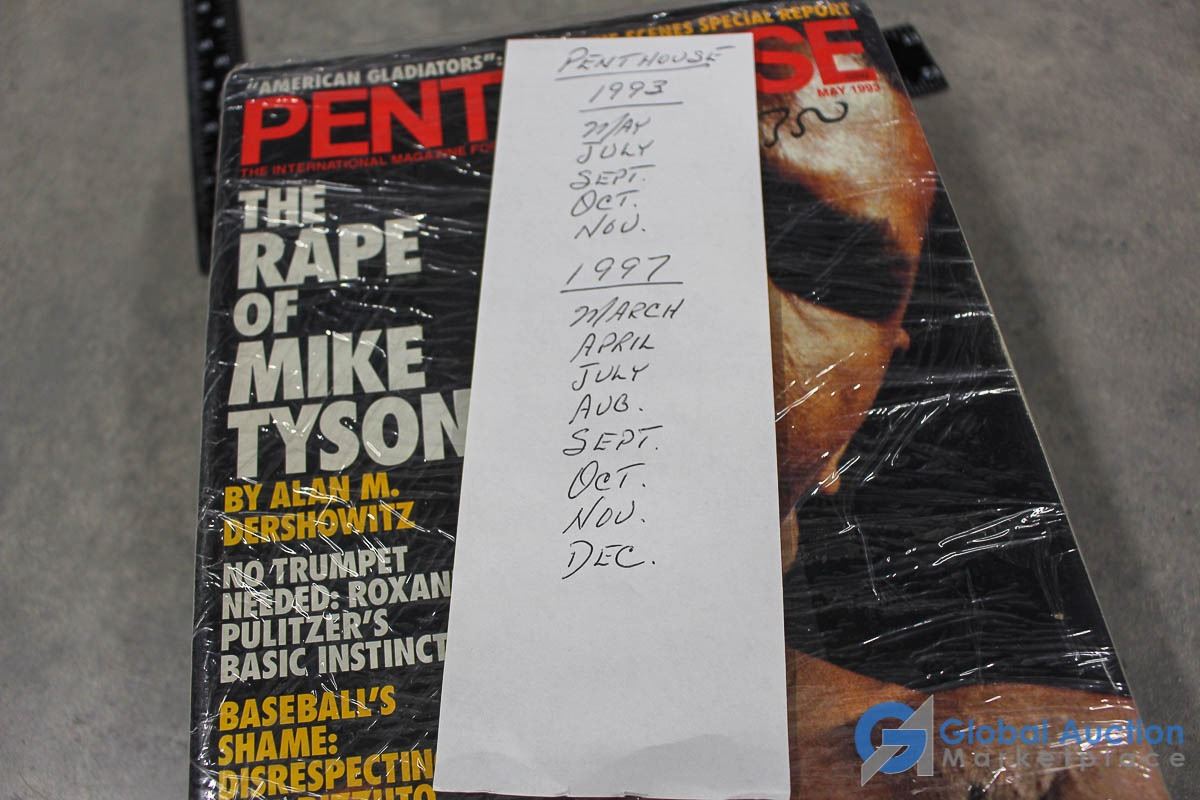 "AMERICAN GLADIATORS":
SCENES SPECIAL REPORT
PENT
SE
THE INTERNATIONAL MAGAZINE FO
MAY 1993
THE
RAPE
OF
MIKE
TYSON
BY ALAN M.
DERSHOWITZ
NO TRUMPET
NEEDED: ROXAN
PULITZER'S
BASIC INSTINCT
BASEBALL'S
SHAME:
DISRESPECTIN
RIZZUTO
PENTHOUSE
1993
MAY
JULY
SEPT.
OCT.
NOV.
1997
MARCH
APRIL
JULY
AUG.
SEPT.
OCT.
NOV.
DEC.
Global Auction
Marketplace